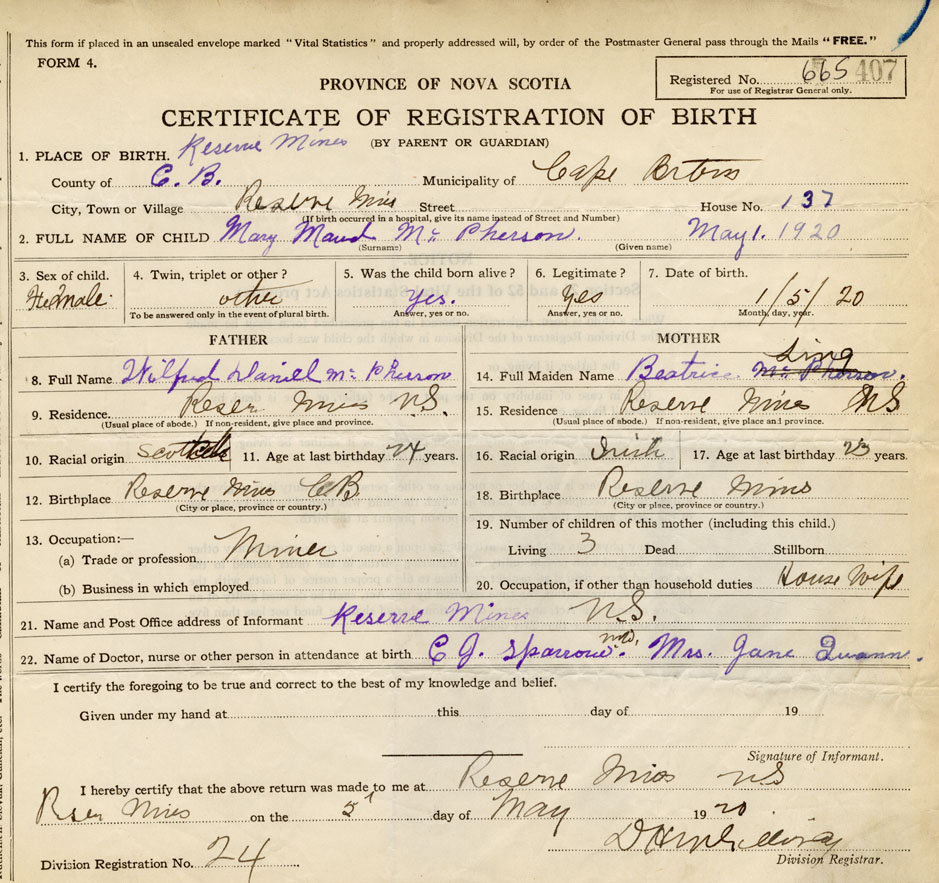 This form if placed in an unsealed envelope marked "Vital Statistics" and properly addressed will, by order of the Postmaster General pass through the Mails "FREE."
FORM 4.
PROVINCE OF NOVA SCOTIA
Registered No. 665 407
For use of Registrar General only.
CERTIFICATE OF REGISTRATION OF BIRTH
(BY PARENT OR GUARDIAN)
1. PLACE OF BIRTH. Reserve Mines
County of C. B. Municipality of Cape Breton
City, Town or Village Reserve Mines Street House No. 137
(If birth occurred in a hospital, give its name instead of Street and Number)
2. FULL NAME OF CHILD Mary Maud Mc Pherson. May 1. 1920
(Surname) (Given name)
3. Sex of child. 4. Twin, triplet or other? 5. Was the child born alive? 6. Legitimate? 7. Date of birth.
Female. other Yes. Yes 1/5/20
To be answered only in the event of plural birth. Answer, yes or no. Answer, yes or no. Month, day, year.
FATHER
8. Full Name Wilfred Daniel Mc Pherson
9. Residence. Reser Mines N.S.
(Usual place of abode.) If non-resident, give place and province.
10. Racial origin Scotch 11. Age at last birthday 24 years.
12. Birthplace Reserve Mines CB
(City or place, province or country.)
13. Occupation:—
(a) Trade or profession Miner
(b) Business in which employed
MOTHER
14. Full Maiden Name Beatrice Mc Pherson.
15. Residence Reserve Mines NS
(Usual place of abode.) If non-resident, give place and province.
16. Racial origin Irish 17. Age at last birthday 23 years.
18. Birthplace Reserve Mines
(City or place, province or country.)
19. Number of children of this mother (including this child.)
Living 3 Dead Stillborn
20. Occupation, if other than household duties House Wife
21. Name and Post Office address of Informant Reserve Mines N.S.
22. Name of Doctor, nurse or other person in attendance at birth C J. Sparrow. M.D. Mrs. Jane
I certify the foregoing to be true and correct to the best of my knowledge and belief.
Given under my hand at this day of 19
Signature of Informant.
I hereby certify that the above return was made to me at Reserve Mines NS
Reser Mines on the 5 day of May 1920
Division Registration No. 24
Division Registrar.